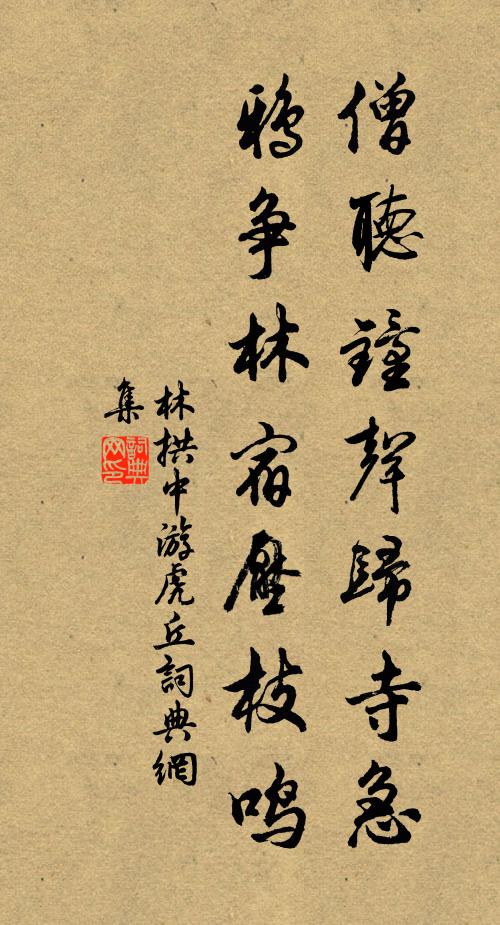 僧聽鐘聲歸寺急
鴉争林宿壓枝鳴
林拱中游虎丘詞典網
集
詞典网印